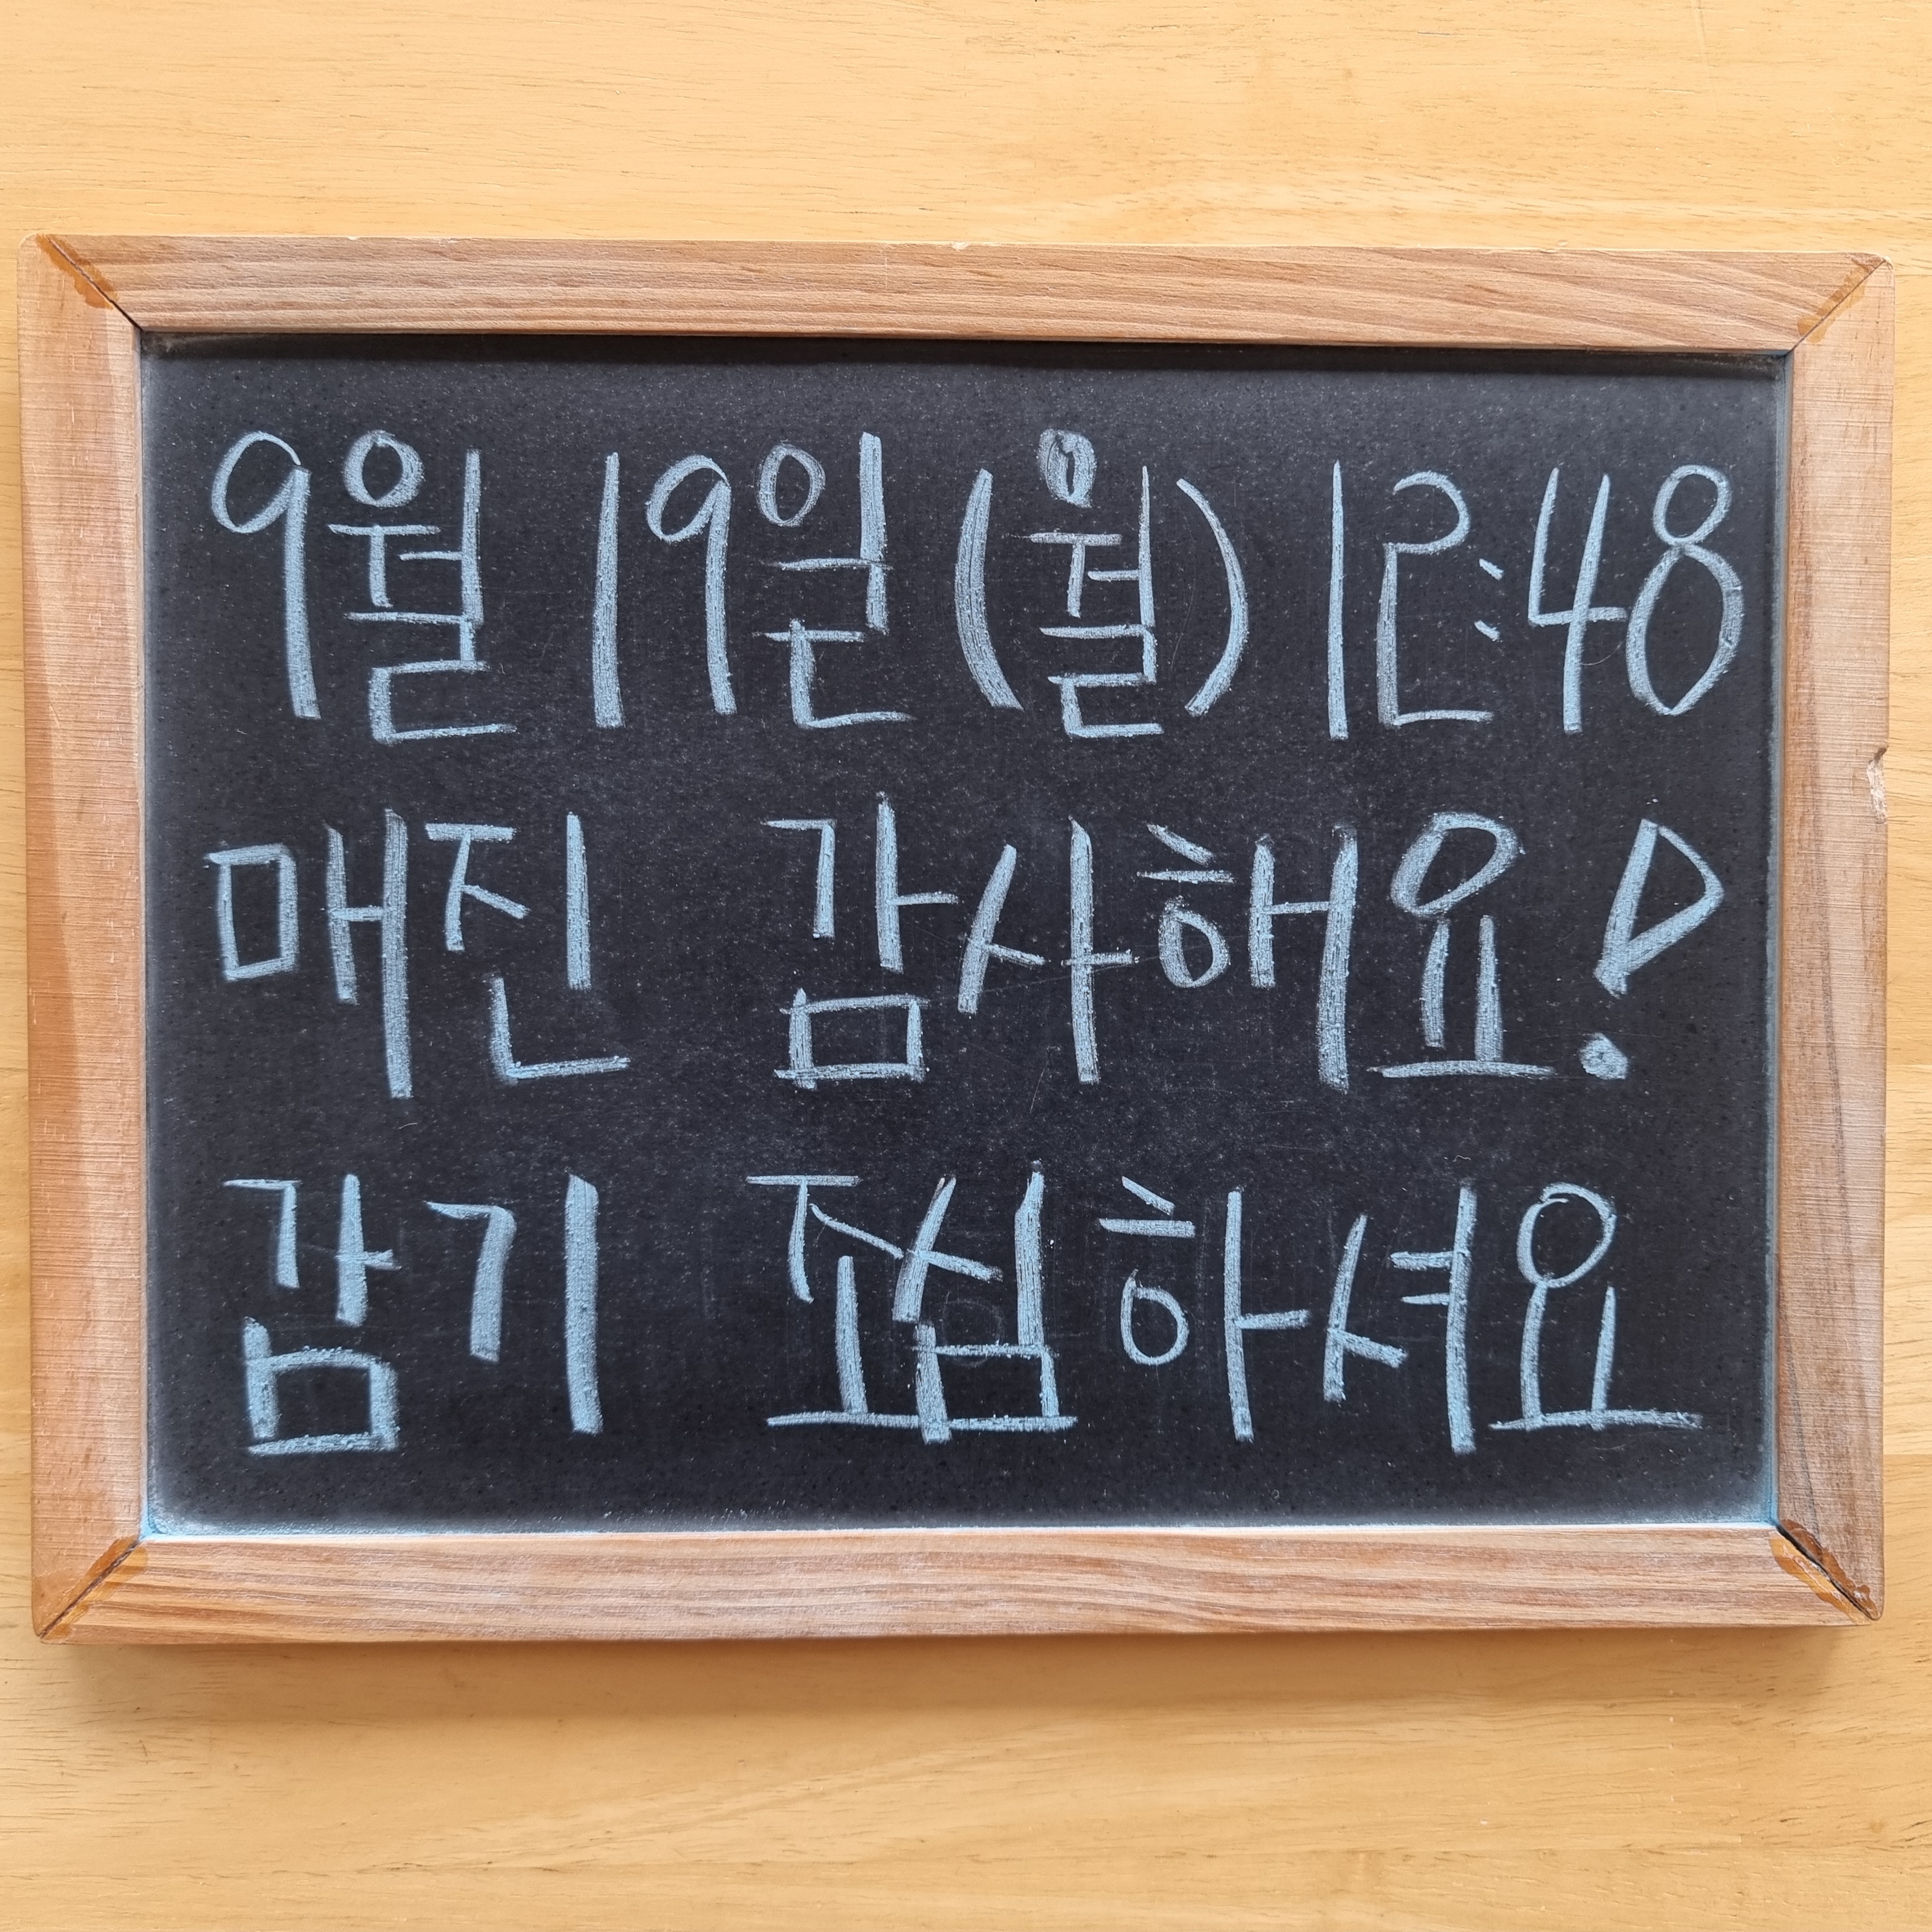 9월 19일(월) 12:48
매진 감사해요!
감기 조심하셔요